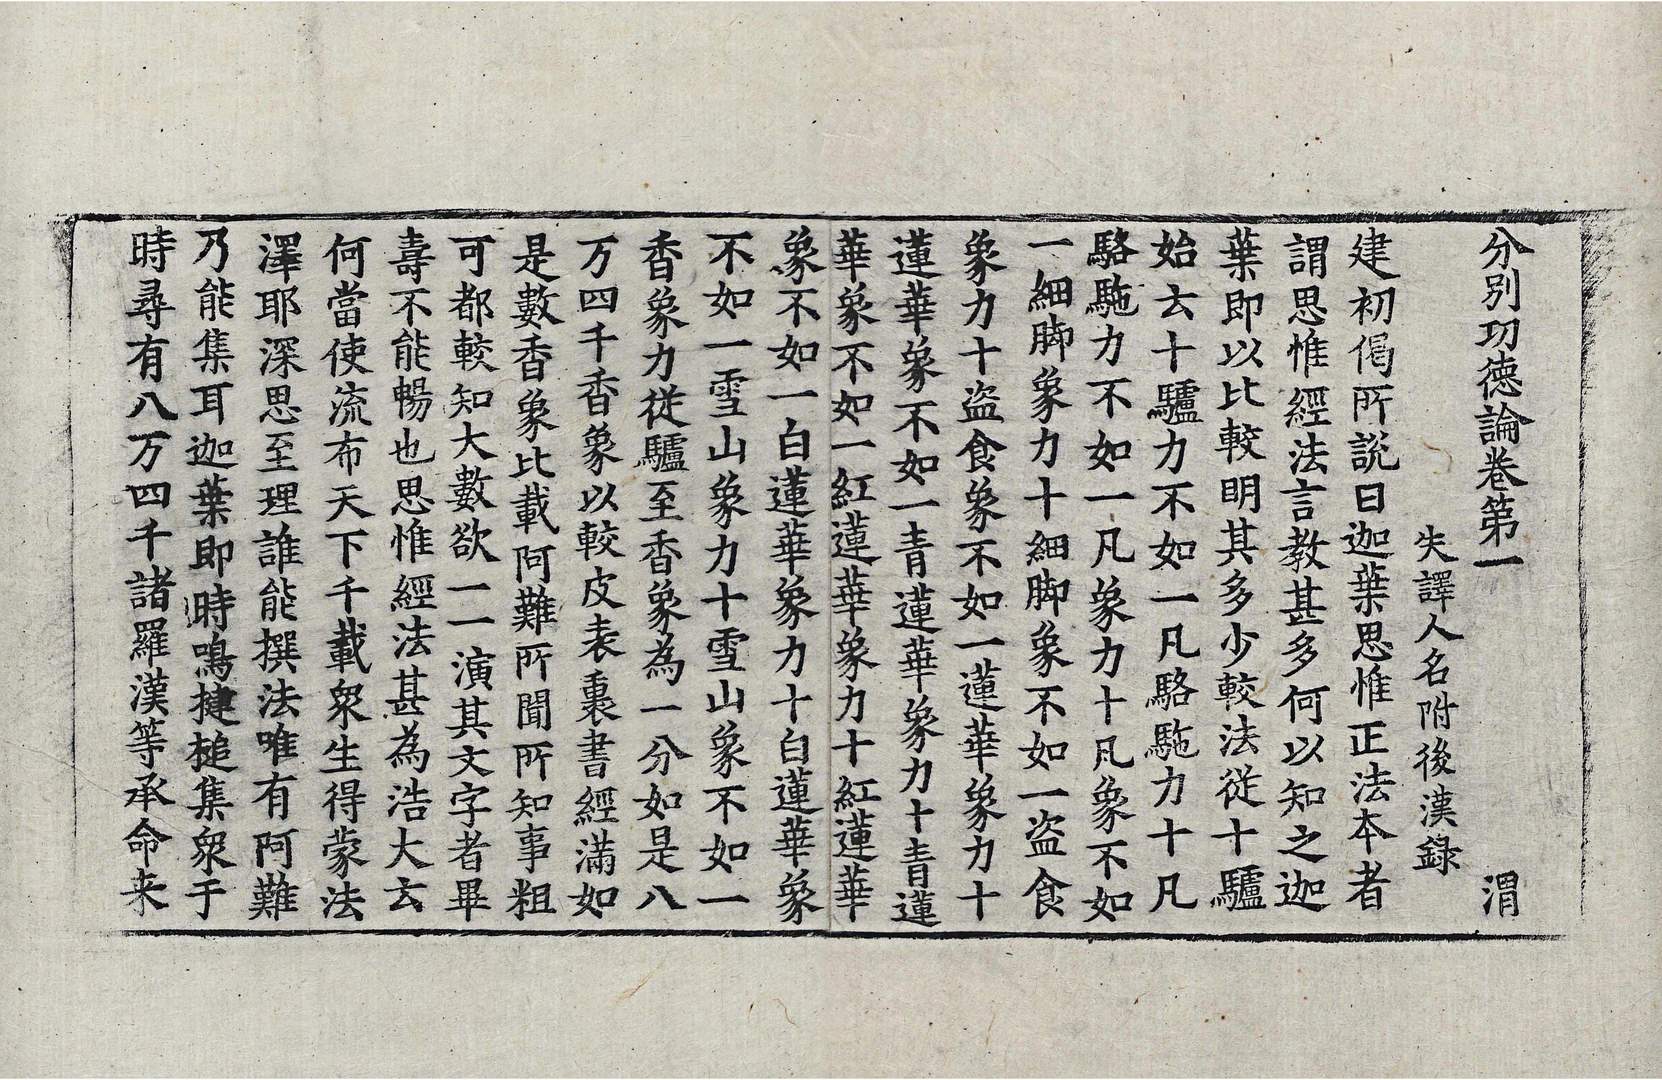 分別功德論卷第一 渭
失譯人名附後漢録
建初偈所說曰迦葉思惟正法本者
謂思惟經法言教甚多何以知之迦
葉即以比較明其多少較法從十驢
始去十驢力不如一凡駱駞力十凡
駱駞力不如一凡象力十凡象不如
一細脚象力十細脚象不如一盗食
象力十盗食象不如一蓮華象力十
蓮華象不如一青蓮華象力十青蓮
華象不如一紅蓮華象力十紅蓮華
象不如一白蓮華象力十白蓮華象
不如一雪山象力十雪山象不如一
香象力從驢至香象為一分如是八
万四千香象以較皮表裏書經滿如
是數香象比載阿難所聞所知事粗
可都較知大數欲一一演其文字者畢
壽不能暢也思惟經法甚為浩大去
何當使流布天下千載衆生得蒙法
澤耶深思至理誰能撰法唯有阿難
乃能集耳迦葉即時鳴揵槌集衆于
時尋有八万四千諸羅漢等承命来